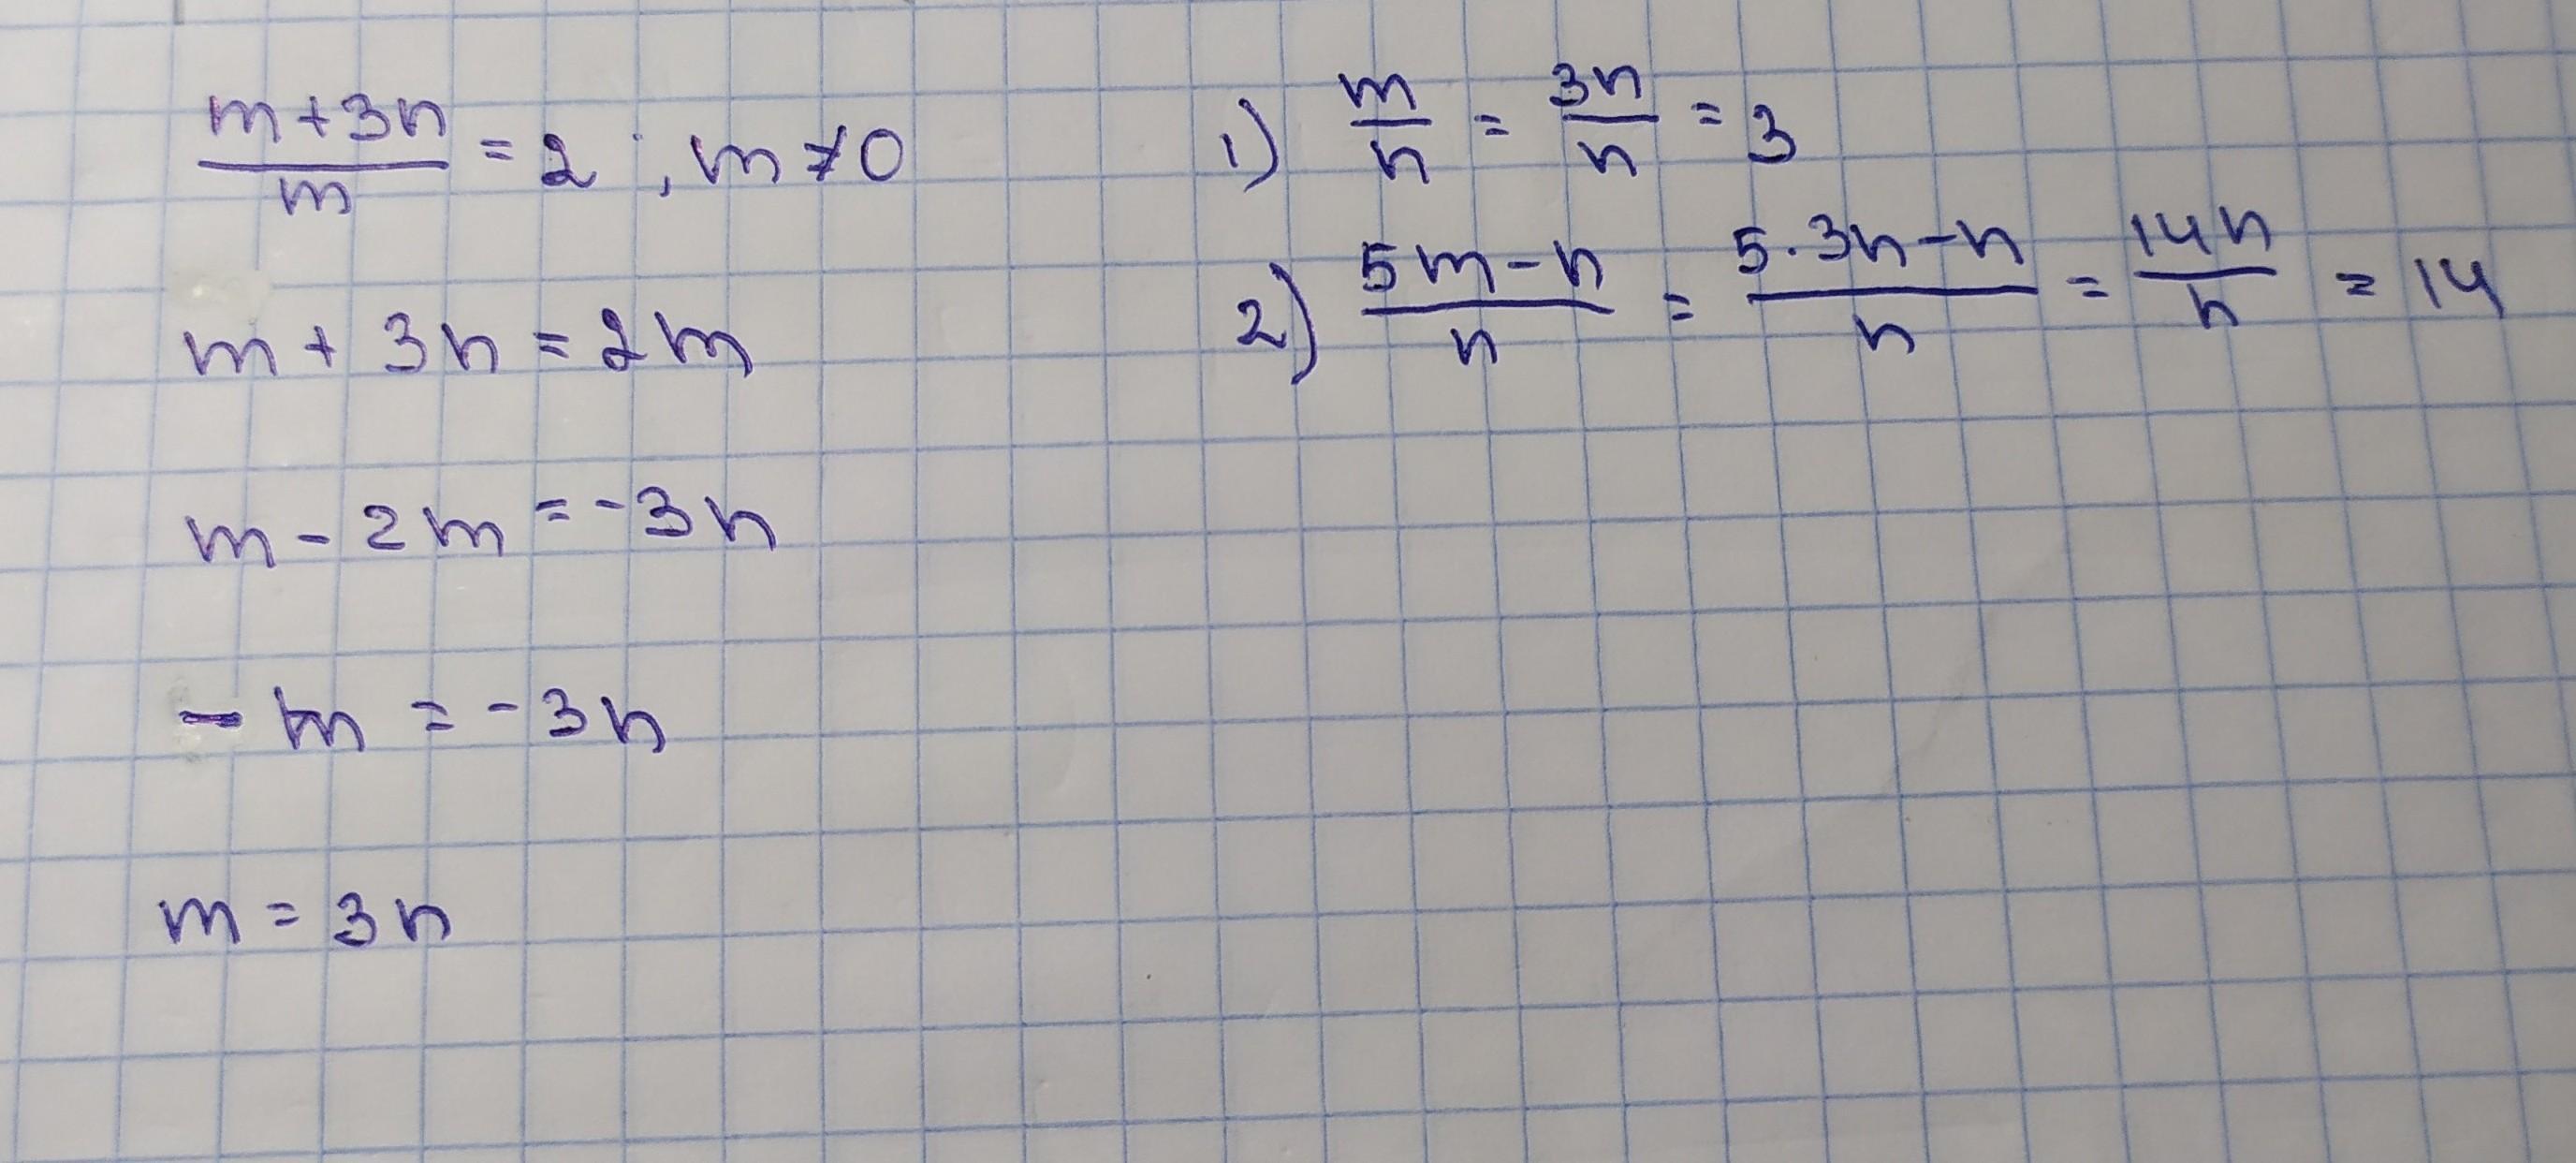 (m+3n)/m = 2 ; m≠0
m + 3n = 2m
m - 2m = -3n
- m = -3n
m = 3n
1) m/n = 3n/n = 3
2) (5m-n)/n = (5·3n-n)/n = 14n/n = 14